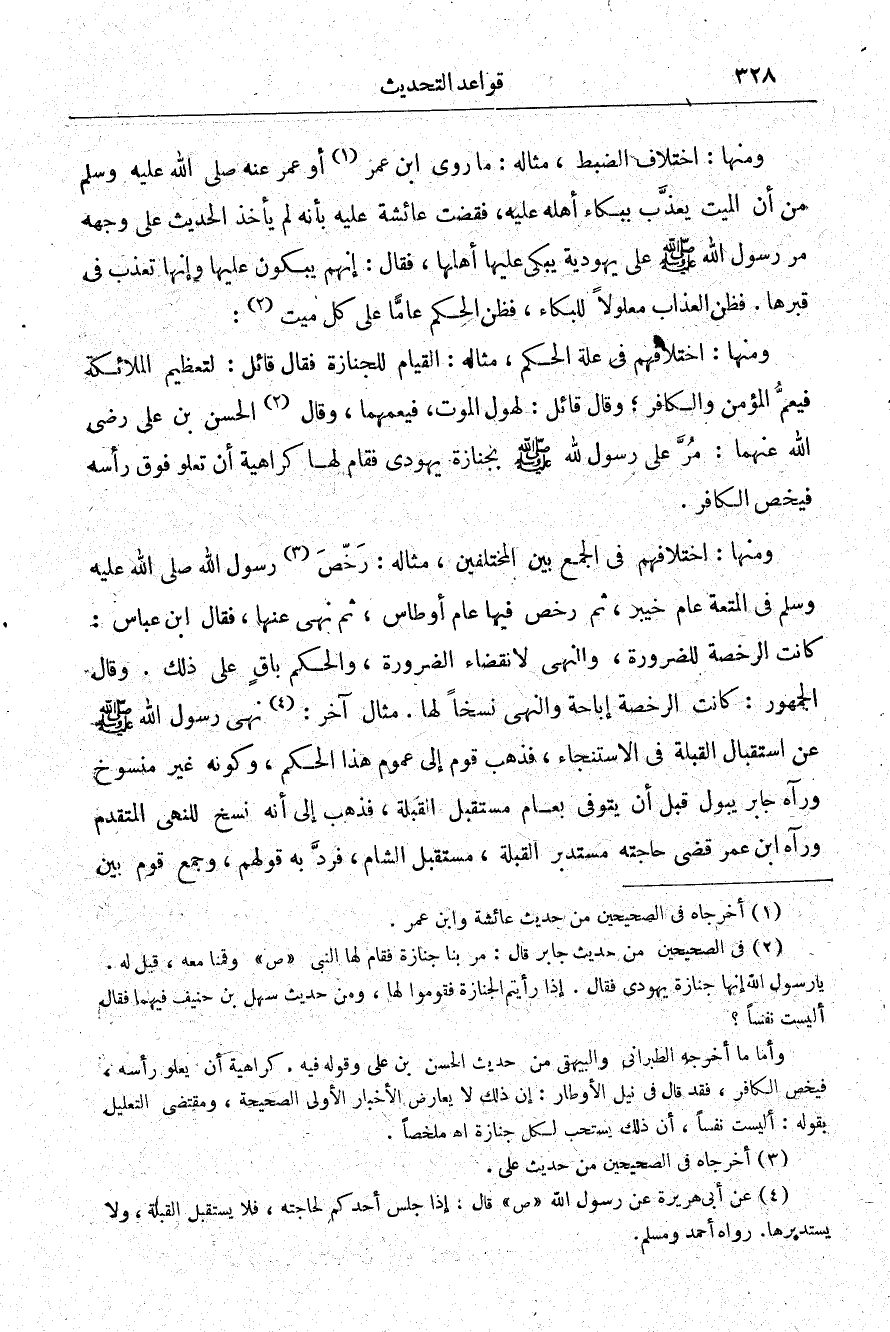 ٣٢٨
قواعد التحديث
ومنها : اختلاف الضبط ، مثاله : ما روى ابن عمر (١) أو عمر عنه صلى الله عليه وسلم
من أن الميت يعذَّب ببكاء أهله عليه، فقضت عائشة عليه بأنه لم يأخذ الحديث على وجهه
مر رسول الله ﷺ على يهودية يبكى عليها أهلها ، فقال : إنهم يبكون عليها وإنها تعذب فى
قبرها . فظن العذاب معلولاً للبكاء ، فظن الحكم عامًّا على كل ميت (٢) :
ومنها : اختلافهم فى علة الحكم ، مثاله : القيام للجنازة فقال قائل : لتعظيم الملائكة
فيعمُّ المؤمن والكافر ؛ وقال قائل : لهول الموت، فيعمهما ، وقال (٢) الحسن بن على رضى
الله عنهما : مُرَّ على رسول لله ﷺ بجنازة يهودى فقام لها كراهية أن تعلو فوق رأسه
فيخص الكافر .
ومنها : اختلافهم فى الجمع بين المختلفين ، مثاله : رَخّصَ (٣) رسول الله صلى الله عليه
وسلم فى المتعة عام خيبر ، ثم رخص فيها عام أوطاس ، ثم نهى عنها ، فقال ابن عباس :
كانت الرخصة للضرورة ، والنهى لانقضاء الضرورة ، والحكم باقٍ على ذلك . وقال
الجمهور : كانت الرخصة إباحة والنهى نسخاً لها . مثال آخر : (٤) نهى رسول الله ﷺ
عن استقبال القبلة فى الاستنجاء ، فذهب قوم إلى عموم هذا الحكم ، وكونه غير منسوخ
ورآه جابر يبول قبل أن يتوفى بعام مستقبل القبلة ، فذهب إلى أنه نسخ للنهى المتقدم
ورآه ابن عمر قضى حاجته مستدبر القبلة ، مستقبل الشام ، فردَّ به قولهم ، وجمع قوم بين
(١) أخرجاه فى الصحيحين من حديث عائشة وابن عمر .
(٢) فى الصحيحين من حديث جابر قال : مر بنا جنازة فقام لها النبى «ص» وقمنا معه ، قيل له .
يارسول الله إنها جنازة يهودى فقال . إذا رأيتم الجنازة فقوموا لها ، ومن حديث سهل بن حنيف فيهما فقال
أليست نفساً ؟
وأما ما أخرجه الطبرانى والبيهقى من حديث الحسن بن على وقوله فيه . كراهية أن يعلو رأسه ،
فيخص الكافر ، فقد قال فى نيل الأوطار : إن ذلك لا يعارض الأخبار الأولى الصحيحة ، ومقتضى التعليل
بقوله : أليست نفساً ، أن ذلك يستحب لكل جنازة اه ملخصاً .
(٣) أخرجاه فى الصحيحين من حديث على .
(٤) عن أبى هريرة عن رسول الله «ص» قال : إذا جلس أحدكم لحاجته ، فلا يستقبل القبلة ، ولا
يستدبرها. رواه أحمد ومسلم.